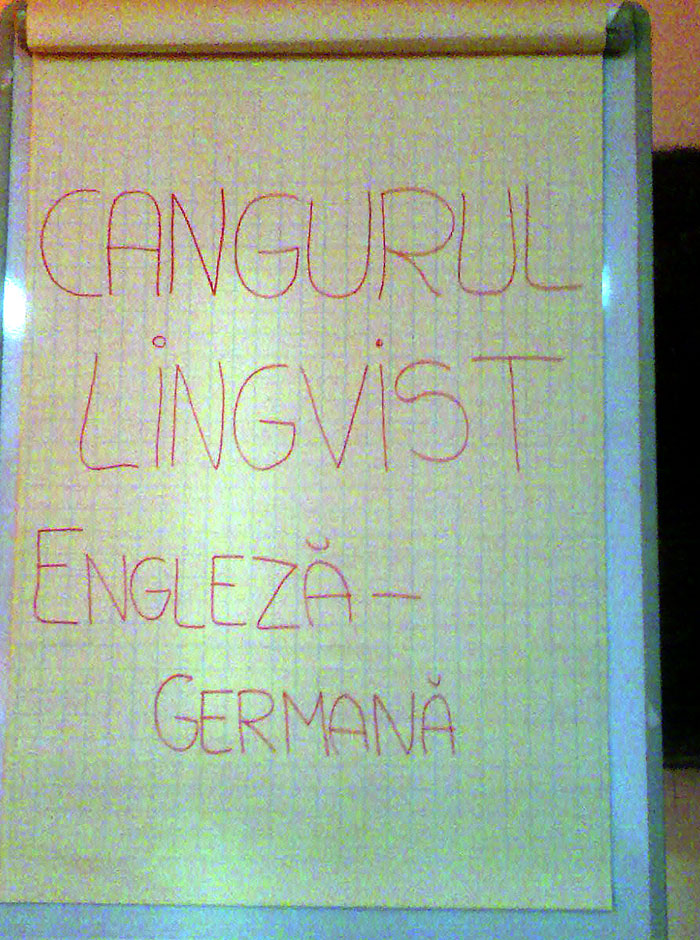 CANGURUL
LINGVIST
ENGLEZĂ -
GERMANĂ